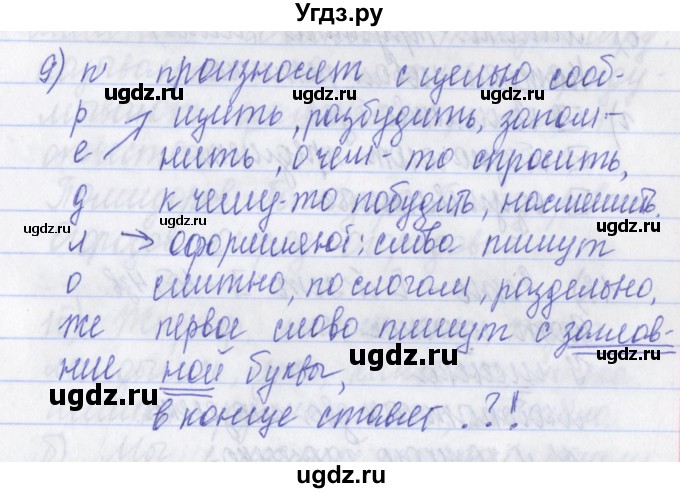 Угдз.ру
9) п произносят с целью сооб-
р щить, разбудить, запом-
е нить, о чём-то спросить,
д к чему-то побудить, насмешить.
л → оформляют: слова пишут
о слитно, по слогам, раздельно,
же первое слово пишут с заглав-
ние ной буквы,
в конце ставят . ? !
ugdz.ru
ugdz.ru
ugdz.ru
ugdz.ru
ugdz.ru
ugdz.ru
ugdz.ru
ugdz.ru
ugdz.ru
ugdz.ru
ugdz.ru